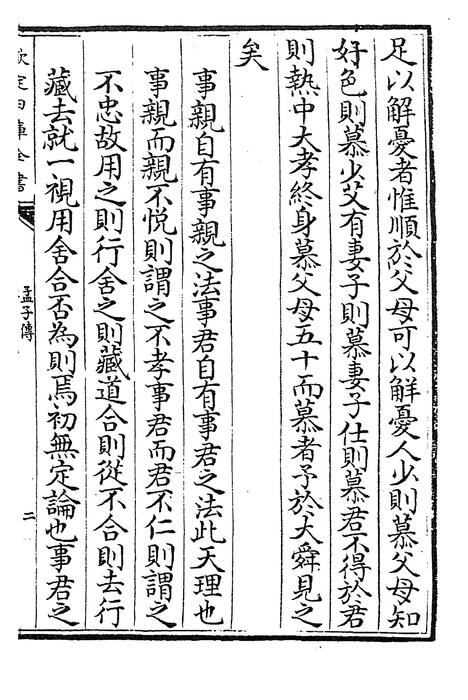 足以解憂者惟順於父母可以解憂人少則慕父母知
好色則慕少艾有妻子則慕妻子仕則慕君不得於君
則熱中大孝終身慕父母五十而慕者予於大舜見之
矣
事親自有事親之法事君自有事君之法此天理也
事親而親不悅則謂之不孝事君而君不仁則謂之
不忠故用之則行舍之則藏道合則從不合則去行
藏去就一視用舍合否為則焉初無定論也事君之
欽定四庫全書
孟子傳
二